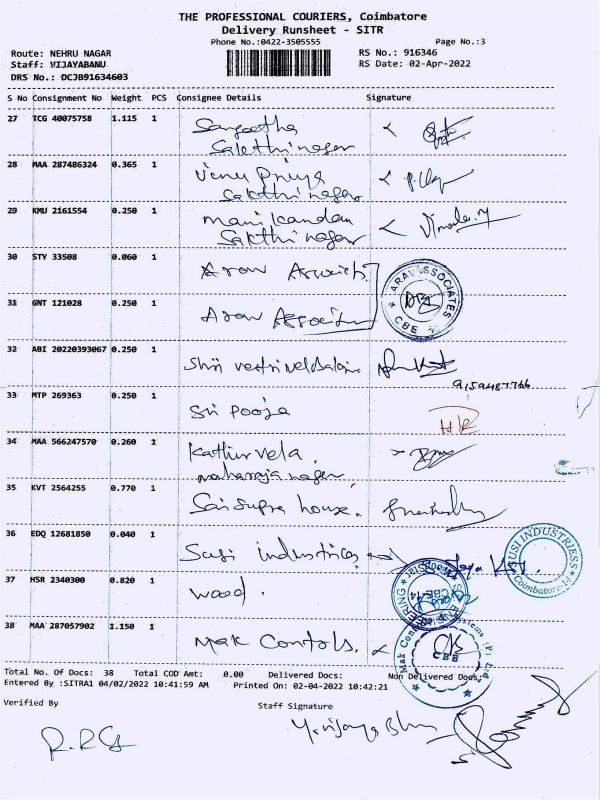 THE PROFESSIONAL COURIERS, Coimbatore
Delivery Runsheet - SITR
Phone No.:0422-3505555
Page No.:3
Route: NEHRU NAGAR
RS No.: 916346
Staff: VIJAYABANU
RS Date: 02-Apr-2022
DRS No.: DCJB91634603
S No Consignment No Weight PCS Consignee Details Signature
27 TCG 40075758 1.115 1 Sangeetha
Sakthi nagar
28 MAA 287486324 0.365 1 Venu Priya
Sakthi nagar
29 KMU 2161554 0.250 1 Mani Kandan
Sakthi nagar
30 STY 33508 0.060 1 Arav Associates
ARAV ASSOCIATES
CBE
31 GNT 121028 0.250 1 Arav Associates
32 ABI 20220393067 0.250 1 Shri vetrivel
33 MTP 269363 0.250 1 Sri Pooja
34 MAA 566247570 0.260 1 Kathirvela
maharaja nagar
35 KVT 2564255 0.770 1 Sai Supra house.
36 EDQ 12681850 0.040 1 Susi industries
SUSI INDUSTRIESS
Coimbatore-14
37 HSR 2340300 0.820 1 wood.
CBE-14
38 MAA 287057902 1.150 1 Mak Controls.
Mak Controls
CBE
Total No. Of Docs: 38 Total COD Amt: 0.00 Delivered Docs: Non Delivered Docs:
Entered By :SITRA1 04/02/2022 10:41:59 AM Printed On: 02-04-2022 10:42:21
Verified By
Staff Signature